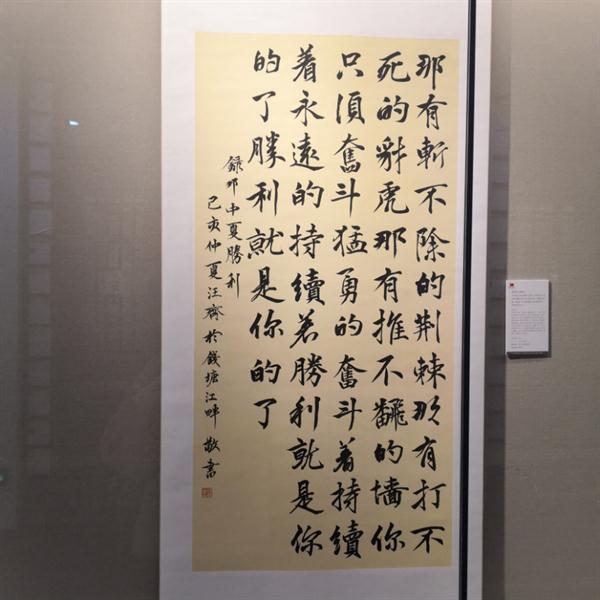 那有斬不除的荆棘那有打不
死的豺虎那有推不飜的墙你
只須奮斗猛勇的奮斗着持續
着永遠的持續着勝利就是你
的了勝利就是你的了
録邓中夏勝利
己亥仲夏汪齋於錢塘江畔敬書